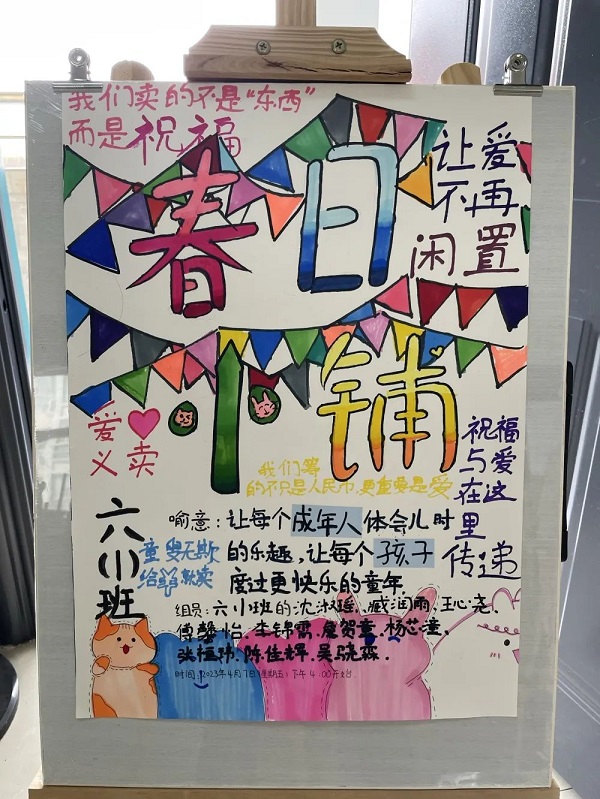 我们卖的不是“东西”
而是祝福
让爱
不再
闲置
春日
小铺
爱
义卖
我们筹
的不只是人民币,更重要是爱
祝福
与爱
在这
里
传递
六(1)
班
童叟无欺
给 就卖
喻意:让每个成年人体会儿时
的乐趣,让每个孩子
度过更快乐的童年.
组员:六(1)班的沈淑瑶、臧润雨、王心尧、
傅馨怡、李锦霖、詹贺童、杨芯潼、
张桓玮、陈佳辉、吴骁霖.
时间:2023年4月7日(星期五)下午4:00开始.